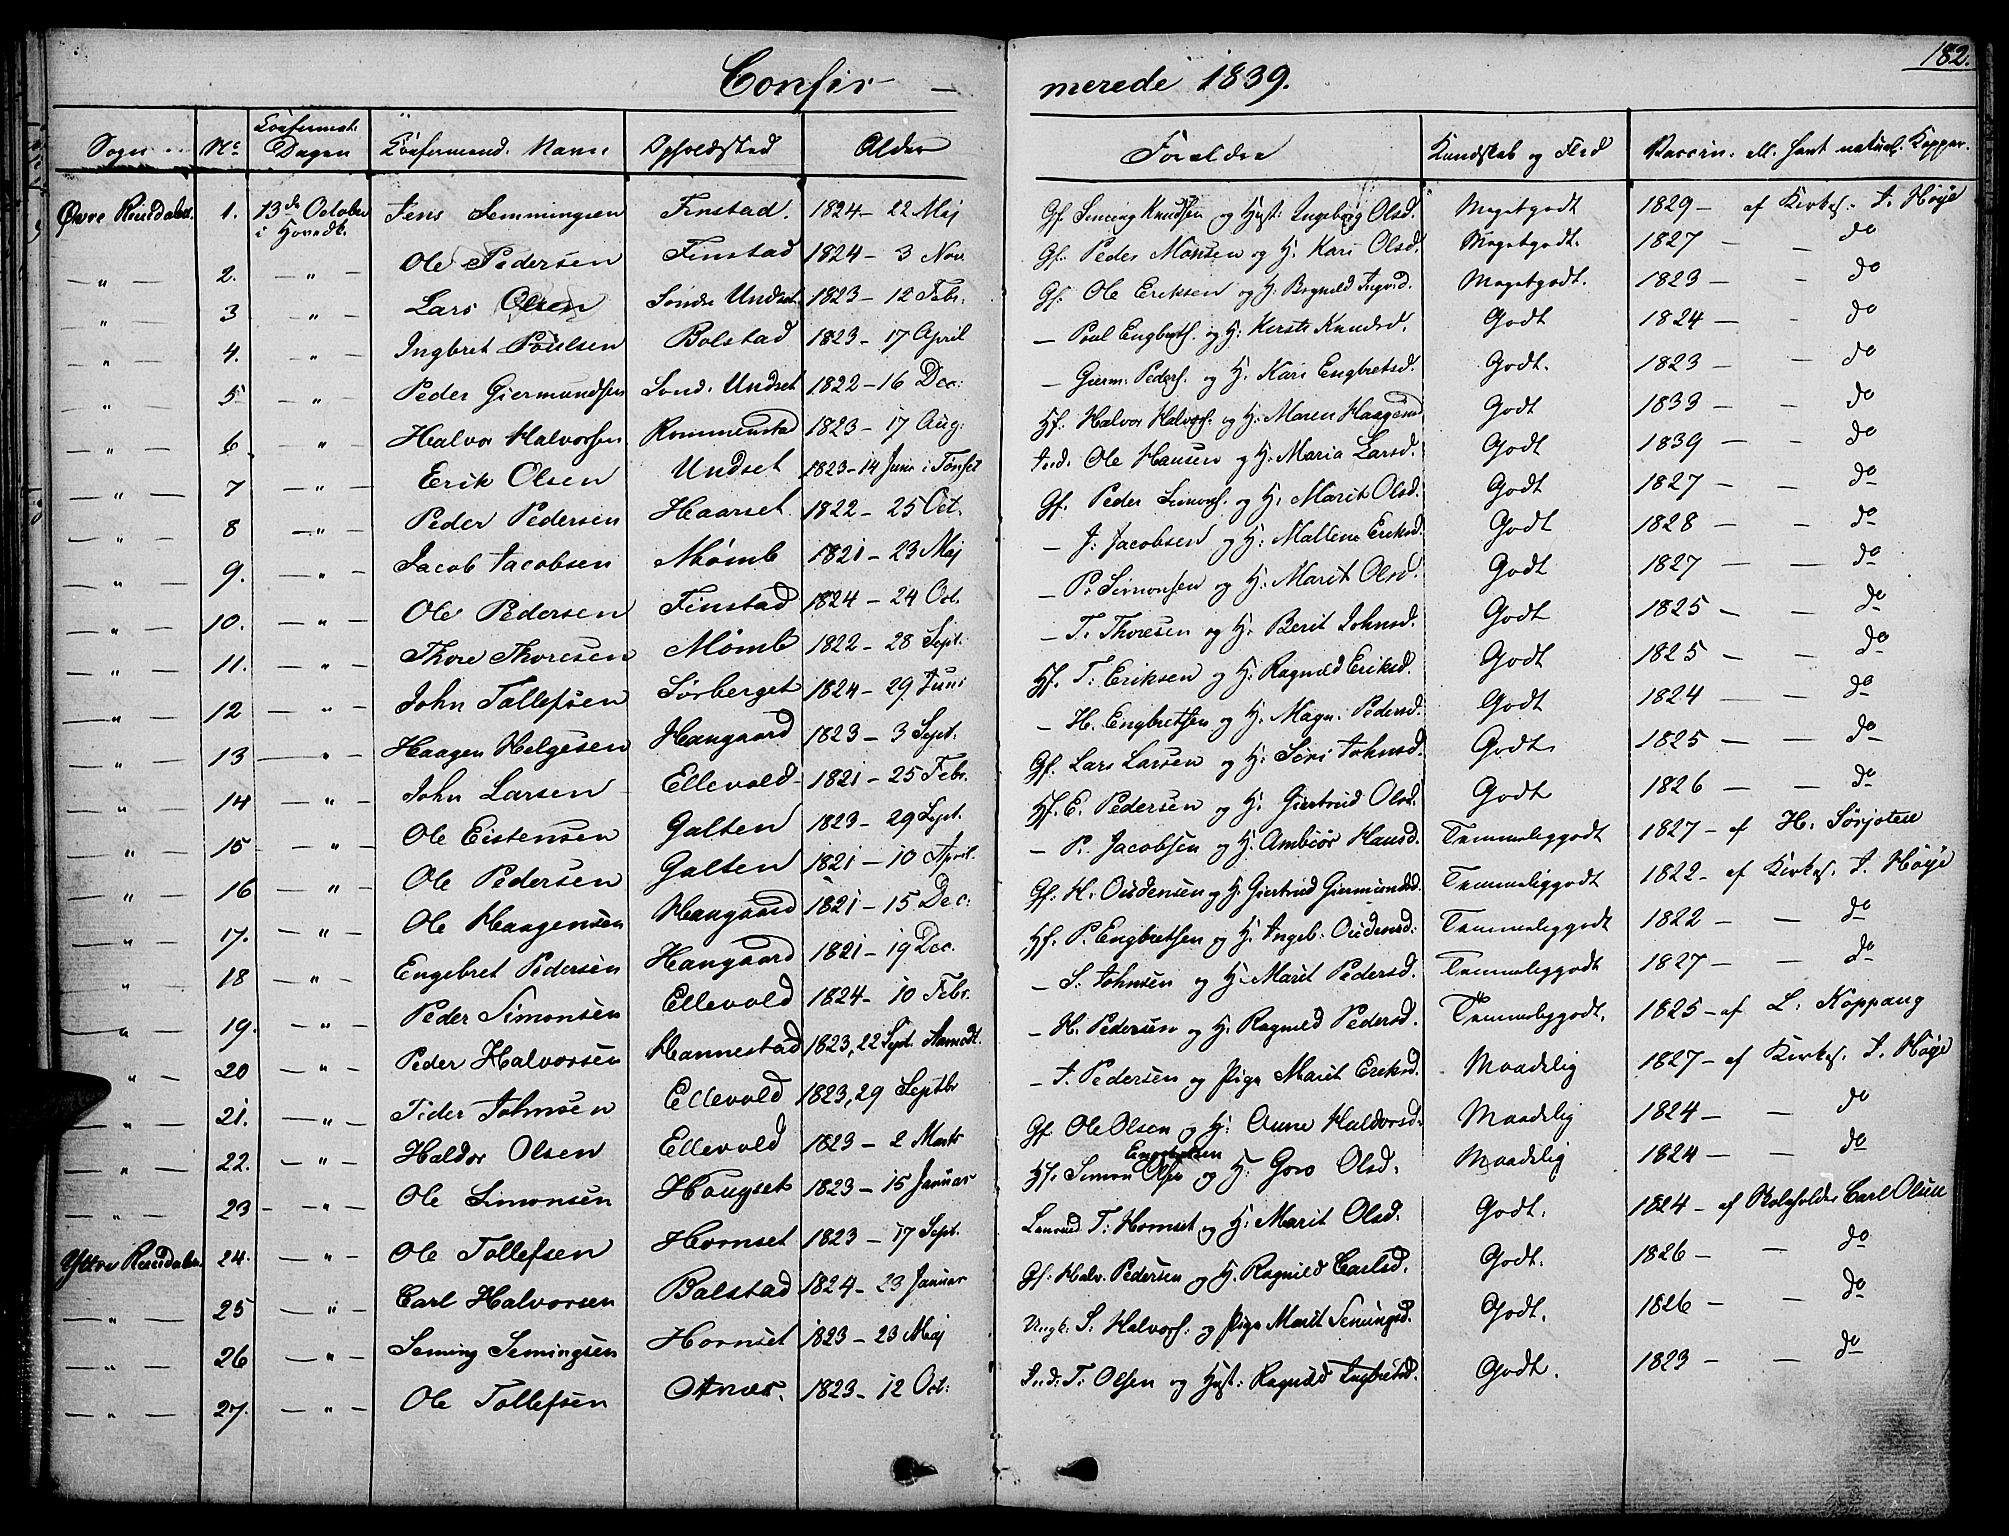 182.
Confir- merede 1839.
Sogn No Confirmat. Dagen Confirmand. Navn Opholdsted Alder Forældre Kundskab og Flid Vaccin. ell. havt naturl. Kopper.
Øvre Rendalen. 1. 13de October i Hovedk. Jens Semmingsen Finstad. 1824 - 22 Maj Gf. Semeing Knudsen og Hust: Ingeborg Olsd. Megetgodt 1829 - af Kirkes. J. Høye
- " - 2. - " - Ole Pedersen Finstad 1824 - 3 Nov. Gf. Peder Monsen og H. Kari Olsd. Megetgodt. 1827 - - do
- " - 3 - " - Lars Olsen Søndre Undset 1823 - 12 Febr: Gf. Ole Eriksen og H: Ragnild Ingvd. Megetgodt. 1823 - - do
" 4. - " - Ingbret Poulsen Bolstad 1823 - 17 April - Poul Engbrets. og H: Kersti Knudsd. Godt 1824 - - do
- " - 5 - " - Peder Giermundsen Sond. Undset 1822 - 16 Dec: - Gierm. Peders. og H. Kari Engbretsd. Godt. 1823 - - do
- " - 6 - " - Halvor Halvorsen Rommenstad 1823 - 17 Aug: Hf. Halvor Halvors. og H: Maren Haagensd Godt 1833 - - do
- " - 7 - " - Erik Olsen Undset 1823 - 14 Juni i Tønset Ind. Ole Hansen og H: Maria Larsd. Godt 1839 - - do
- " - 8 - " - Peder Pedersen Haarset 1822 - 25 Oct. Gf. Peder Simons. og H. Marit Olsd. Godt 1827 - - do
- " - 9. - " - Jacob Jacobsen Mømb 1821 - 23 Maj - J. Jacobsen og H: Mallene Eriksd. Godt 1828 - - do
- " - 10. - " - Ole Pedersen Finstad 1824 - 24 Oct. - P. Simonsen og H: Marit Olsd. Godt 1827 - - do
- " - 11. - " - Thore Thoresen Mømb 1822 - 28 Sept: - T. Thoresen og H. Berit Johnsd. Godt 1825 - - do
- " - 12 - " - John Tollefsen Sørberget 1824 - 29 Juni Hf. T: Eriksen og H: Ragnild Eriksd. Godt 1825 - - do
- " - 13 - " - Haagen Helgesen Haugaard 1823 - 3 Sept. - H. Engbretsen og H. Magn. Pedersd. Godt 1824 - - do
- " - 14 - " - John Larsen Ellevold 1821 - 25 Febr. Gf. Lars Larsen og H: Siri Johnsd. Godt 1825 - - do
- " - 15 - " - Ole Eistensen Galten 1823 - 29 Sept. Hf. E. Pedersen og H. Giertrud Olsd. Godt 1826 - - do
- " - 16 - " - Ole Pedersen Galten 1821 - 10 April. - P. Jacobsen og H: Ambiør Hansd. Temmeliggodt 1827 - af H. Sørjoten
- " - 17. - " - Ole Haagensen Haugaard 1821 - 15 Dec: Gf: H. Oudensen og H. Giertrud Giermundsd. Temmeliggodt 1822 - af Kirkes. J. Høye
- " - 18 - " - Engebret Pedersen Haugaard 1821 - 19 Dec. Hf. P. Engbretsen og H. Ingeb: Oudensd: Temmeliggodt 1822 - - do
- " - 19. - " - Peder Simonsen Ellevold 1824 - 10 Febr. - S. Johnsen og H: Marit Pedersd. Temmeliggodt 1827 - - do
- " - 20 - " - Peder Halvorsen Hannestad 1823, 22 Sept. Aamodt. - H. Pedersen og H. Ragnild Pedersd. Temmeliggodt. 1825 - af L. Koppang
- " - 21. - " - Peder Johnsen Ellevold 1823, 29 Septbr - J. Pedersen og Pige Marit Eriksd. Maadelig 1827 - af Kirkes. J. Høye
- " - 22. - " - Haldor Olsen Ellevold 1823 - 2 Marts Gf. Ole Olsen og H: Anne Haldorsd. Maadelig 1824 - - do
- " - 23 - " - Ole Simonsen Haugset 1823 - 15 Januar Hf. Simon Olsen Engebretsen og H: Goro Olsd. Maadelig 1824 - - do
Yttre Rendalen. 24. - " - Ole Tollefsen Hornset 1823 - 17 Sept. Lensmd. T: Hornset og H: Marit Olsd. Godt. 1824 - af Skoleholder Carl Olsen
- " - 25 - " - Carl Halvorsen Bolstad 1824 - 23 Januar Gf: Halv. Pedersen og H. Ragnild Carlsd. Godt. 1826 - - do
- " - 26 - " - Seming Semingsen Hornset 1823 - 23 Maj Ungk: S. Halvors: og Pige Marit Semingsd. Godt. 1826 - - do
- " - 27. - " - Ole Tollefsen Aknæs. 1823 - 12 Oct: Ind: T: Olsen og Hust: Ragnild Ingbretsd. Godt. 1823 - - do